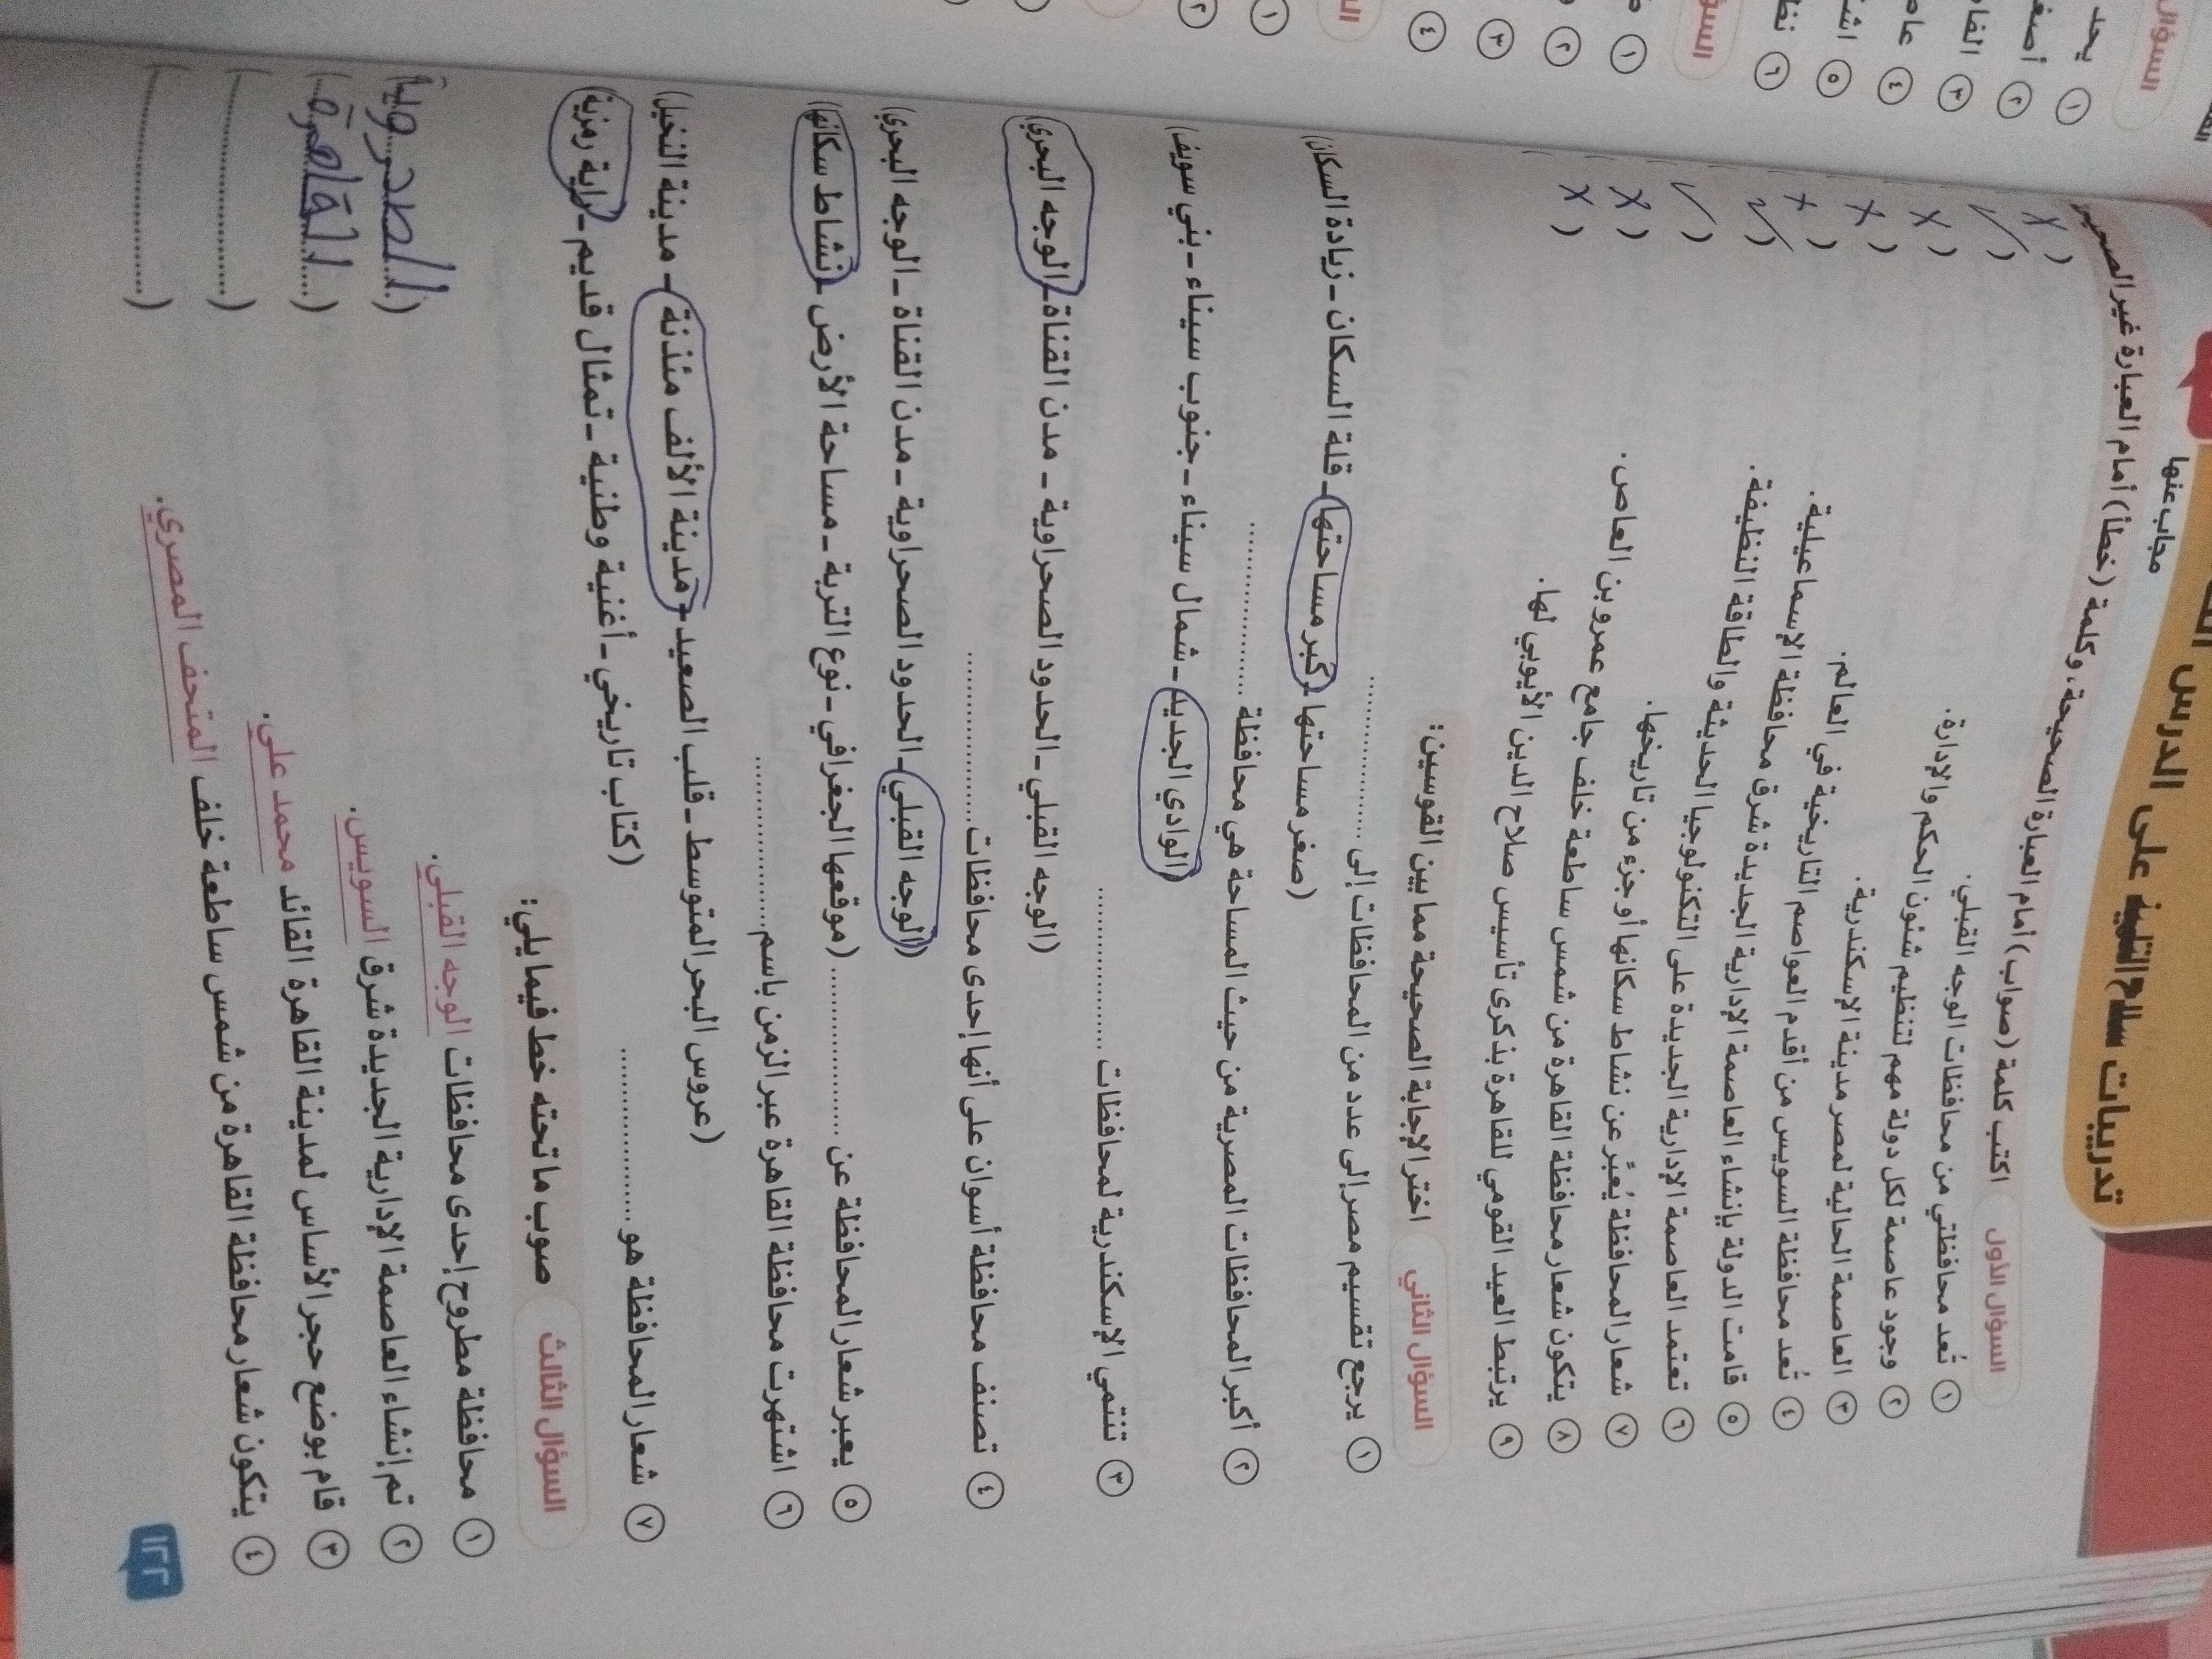 تدريبات سلاح التلميذ على الدرس
مجاب عنها
السؤال الأول اكتب كلمة (صواب) أمام العبارة الصحيحة، وكلمة (خطأ) أمام العبارة غير الصحيحة
١ تُعد محافظتي من محافظات الوجه القبلي. ( X )
٢ وجود عاصمة لكل دولة مهم لتنظيم شئون الحكم والإدارة. ( ✓ )
٣ العاصمة الحالية لمصر مدينة الإسكندرية. ( X )
٤ تُعد محافظة السويس من أقدم العواصم التاريخية في العالم. ( X )
٥ قامت الدولة بإنشاء العاصمة الإدارية الجديدة شرق محافظة الإسماعيلية. ( X )
٦ تعتمد العاصمة الإدارية الجديدة على التكنولوجيا الحديثة والطاقة النظيفة. ( ✓ )
٧ شعار المحافظة يُعبِّر عن نشاط سكانها أو جزء من تاريخها. ( ✓ )
٨ يتكون شعار محافظة القاهرة من شمس ساطعة خلف جامع عمرو بن العاص. ( X )
٩ يرتبط العيد القومي للقاهرة بذكرى تأسيس صلاح الدين الأيوبي لها. ( X )
السؤال الثاني اختر الإجابة الصحيحة مما بين القوسين:
١ يرجع تقسيم مصر إلى عدد من المحافظات إلى ..................
(صغر مساحتها - كبر مساحتها - قلة السكان - زيادة السكان)
٢ أكبر المحافظات المصرية من حيث المساحة هي محافظة ..................
(الوادي الجديد - شمال سيناء - جنوب سيناء - بني سويف)
٣ تنتمي الإسكندرية لمحافظات ..................
(الوجه القبلي - الحدود الصحراوية - مدن القناة - الوجه البحري)
٤ تصنف محافظة أسوان على أنها إحدى محافظات ..................
(الوجه القبلي - الحدود الصحراوية - مدن القناة - الوجه البحري)
٥ يعبر شعار المحافظة عن .................. (موقعها الجغرافي - نوع التربة - مساحة الأرض - نشاط سكانها)
٦ اشتهرت محافظة القاهرة عبر الزمن باسم ..................
(عروس البحر المتوسط - قلب الصعيد - مدينة الألف مئذنة - مدينة النخيل)
٧ شعار المحافظة هو ..................
(كتاب تاريخي - أغنية وطنية - تمثال قديم - راية رمزية)
السؤال الثالث صوب ما تحته خط فيما يلي:
١ محافظة مطروح إحدى محافظات الوجه القبلي.
٢ تم إنشاء العاصمة الإدارية الجديدة شرق السويس. (القاهرة)
٣ قام بوضع حجر الأساس لمدينة القاهرة القائد محمد علي. (..................)
٤ يتكون شعار محافظة القاهرة من شمس ساطعة خلف المتحف المصري. (..................)
١٢٢
السؤال
١ يحد
٢ أصغ
٣ القا
٤ عاص
٥
٦
السؤ
١
٢
٣
٤